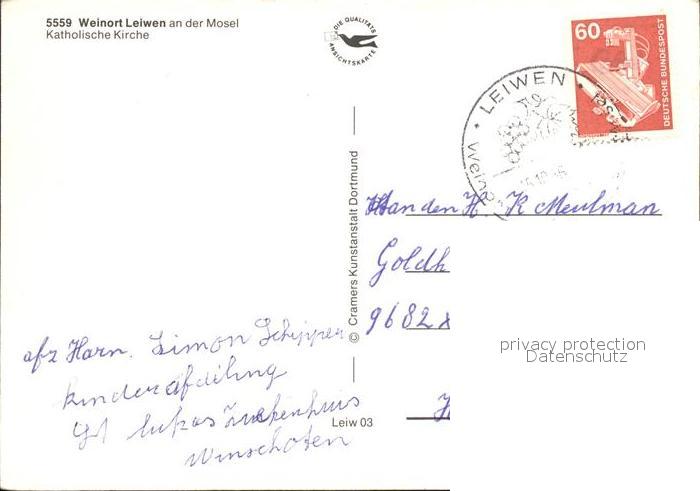 5559 Weinort Leiwen an der Mosel
Katholische Kirche
DIE QUALITÄTS
ANSICHTSKARTE
60
DEUTSCHE BUNDESPOST
LEIWEN
Weinort
© Cramers Kunstanstalt Dortmund
Aan den H K Meulman
Goldh
9682
privacy protection
Datenschutz
afz Harm. Simon Schipper
kinderafdiling
St lukas Ziekenhuis
Winschoten
Leiw 03